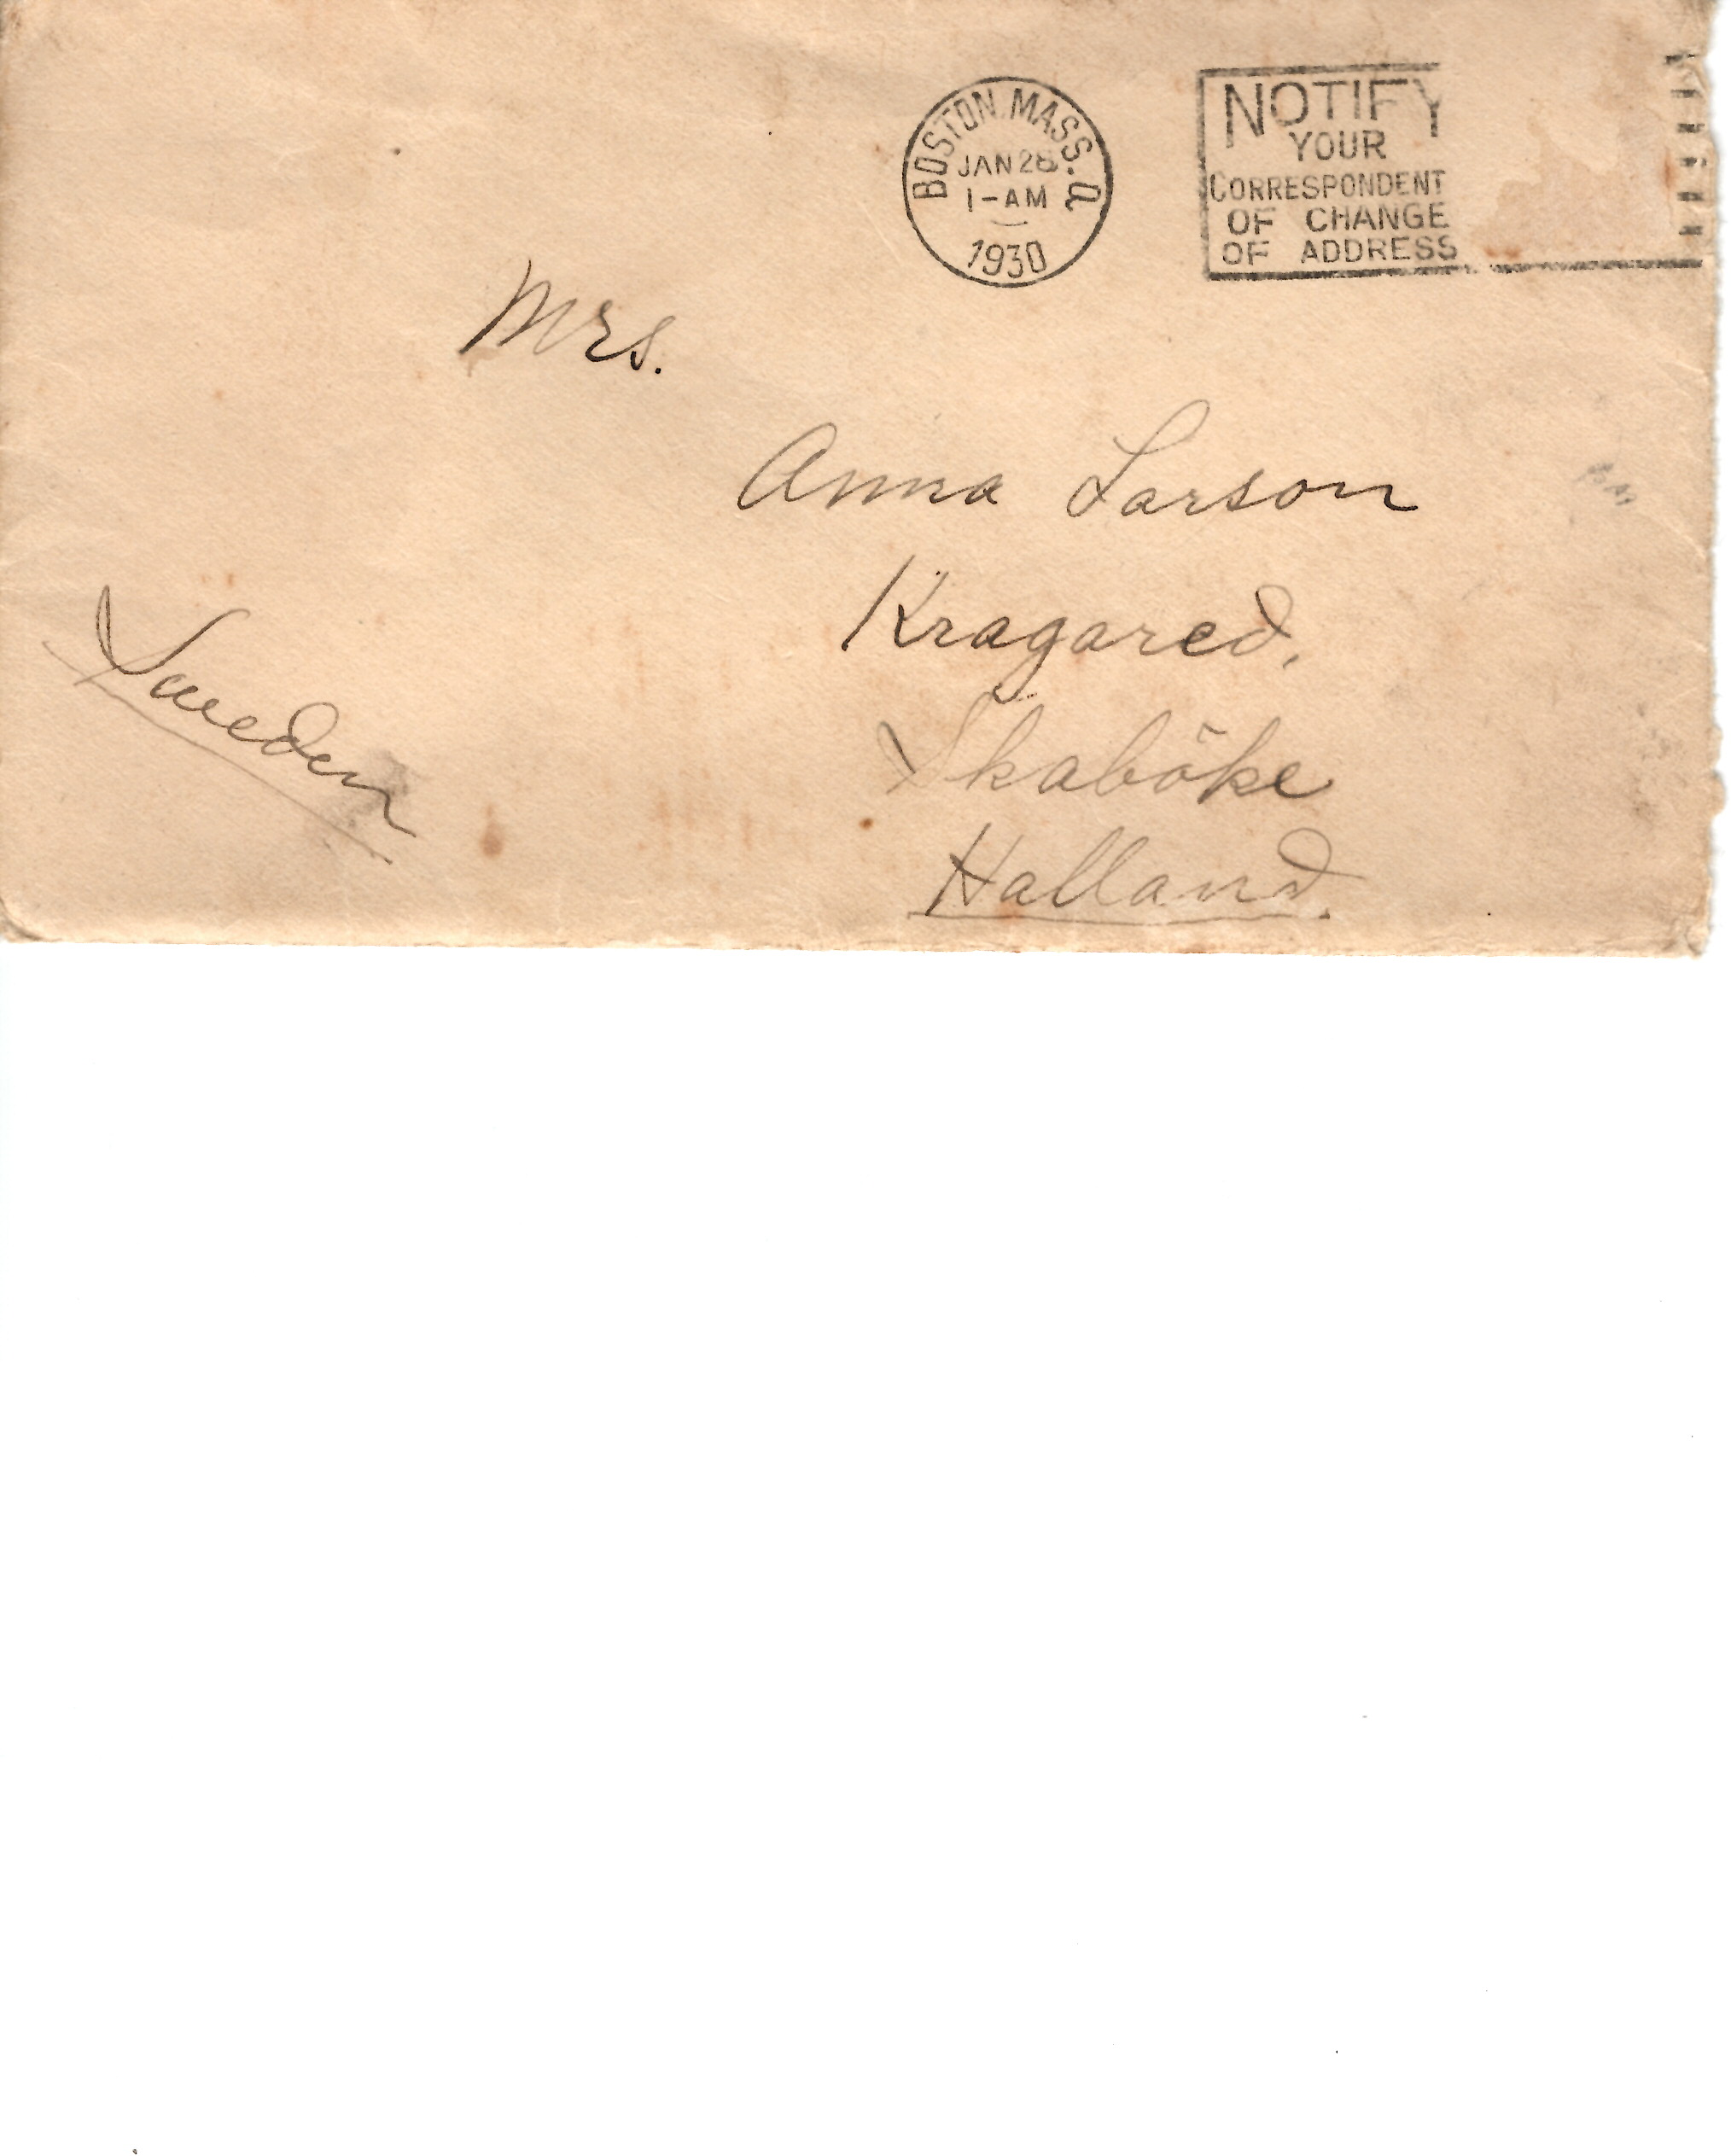 BOSTON, MASS. Q
JAN 28
1-AM
1930
NOTIFY
YOUR
CORRESPONDENT
OF CHANGE
OF ADDRESS
Mrs.
Anna Larson
Kragared,
Skaböke
Halland.
Sweden